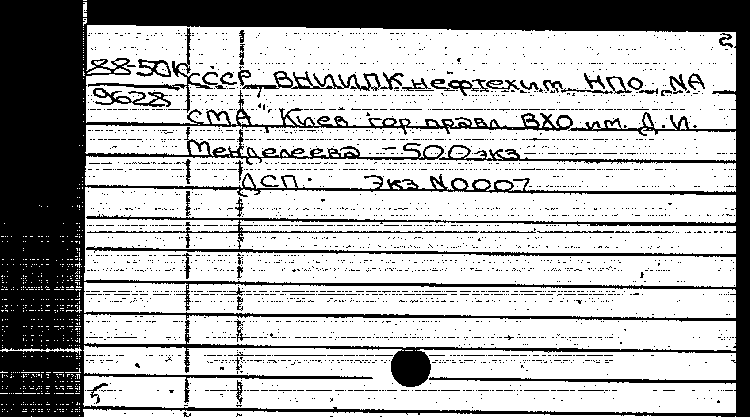 2
88-50К СССР, ВНИИПКнефтехим НПО „МА
9628
СМА", Киев гор правл. ВХО им. Д.И.
Менделеева - 500экз.
ДСП. Экз N0007
5